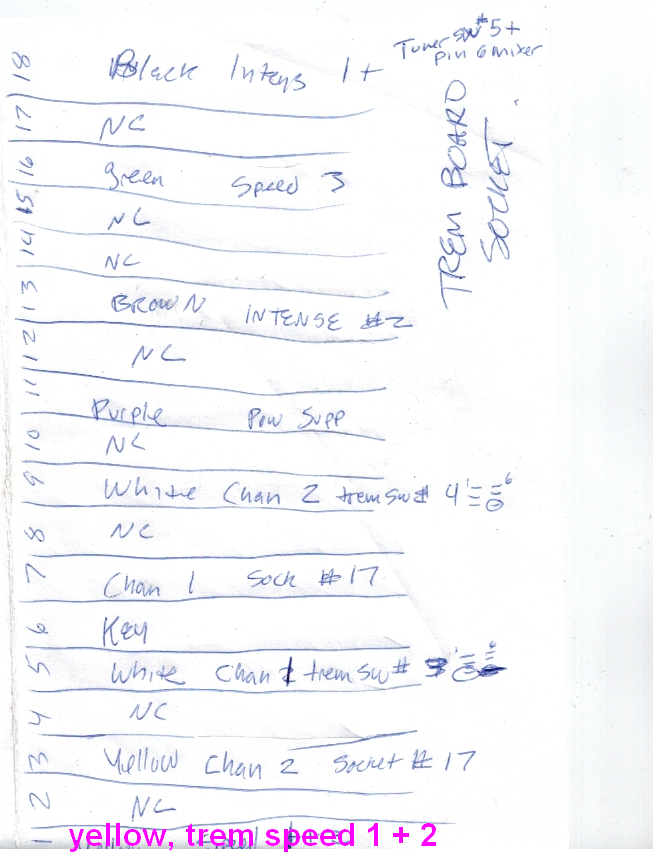 Tuner sw #5 +
pin 6 mixer
TREM BOARD
SOCKET
18 Black Intens 1 +
17 NC
16 green Speed 3
15 NC
14 NC
13 BROWN INTENSE #2
12 NC
11 Purple Pow Supp
10 NC
9 White Chan 2 trem sw # 4 1 6
8 NC
7 Chan 1 Sock #17
6 Key
5 White Chan 1 trem sw # 3 1 6
4 NC
3 Yellow Chan 2 Socket #17
2 NC
1
yellow, trem speed 1 + 2